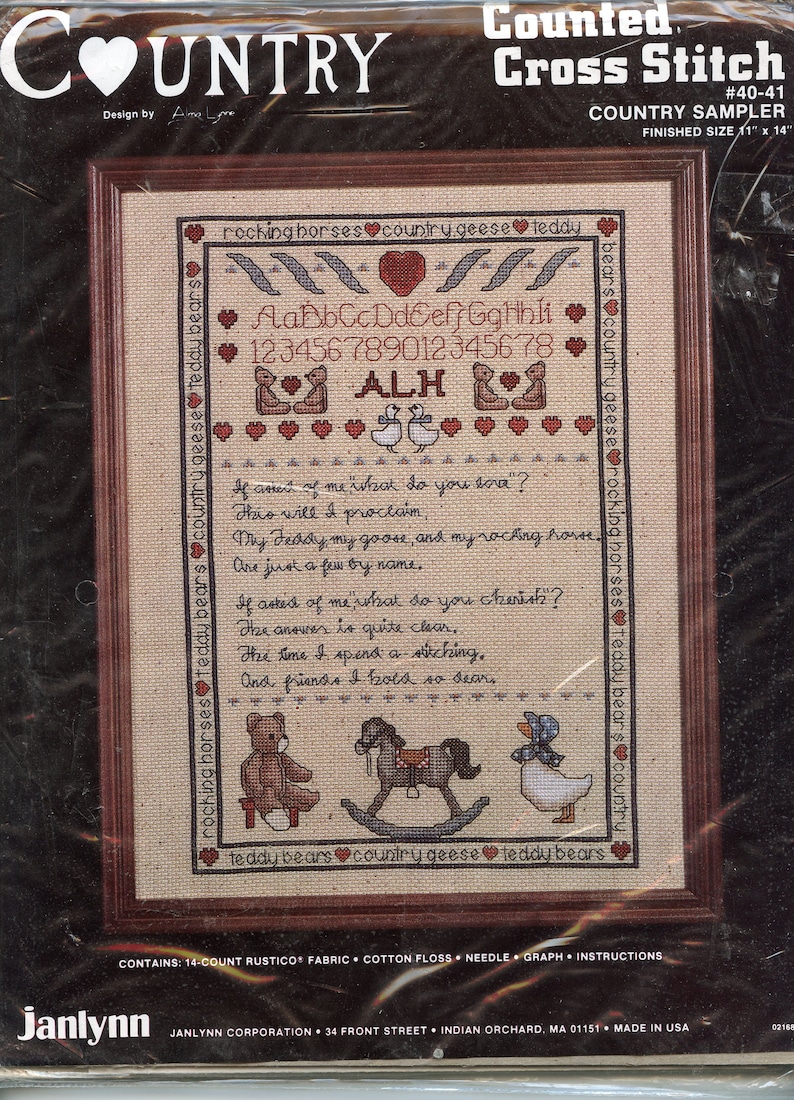 COUNTRY
Design by Alma Lynne
Counted
Cross Stitch
#40-41
COUNTRY SAMPLER
FINISHED SIZE 11" x 14"
rocking horses country geese teddy
bears country geese rocking horses teddy bears country
rocking horses teddy bears country geese teddy bears
AaBbCcDdEeFfGgHhIi
123456789012345678
ALH
If asked of me,"what do you love"?
This will I proclaim,
My Teddy, my goose, and my rocking horse.
Are just a few by name.
If asked of me,"what do you cherish"?
The answer is quite clear.
The time I spend a stitching.
And friends I hold so dear.
teddy bears country geese teddy bears
CONTAINS: 14-COUNT RUSTICO® FABRIC • COTTON FLOSS • NEEDLE • GRAPH • INSTRUCTIONS
janlynn
JANLYNN CORPORATION • 34 FRONT STREET • INDIAN ORCHARD, MA 01151 • MADE IN USA
02168